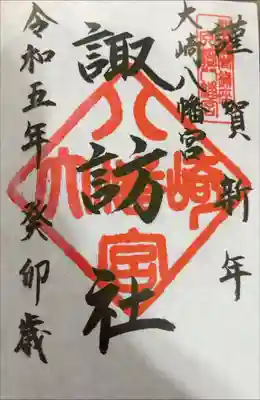 謹賀新年
大崎八幡宮
諏訪社
令和五年癸卯歳
大崎八幡宮